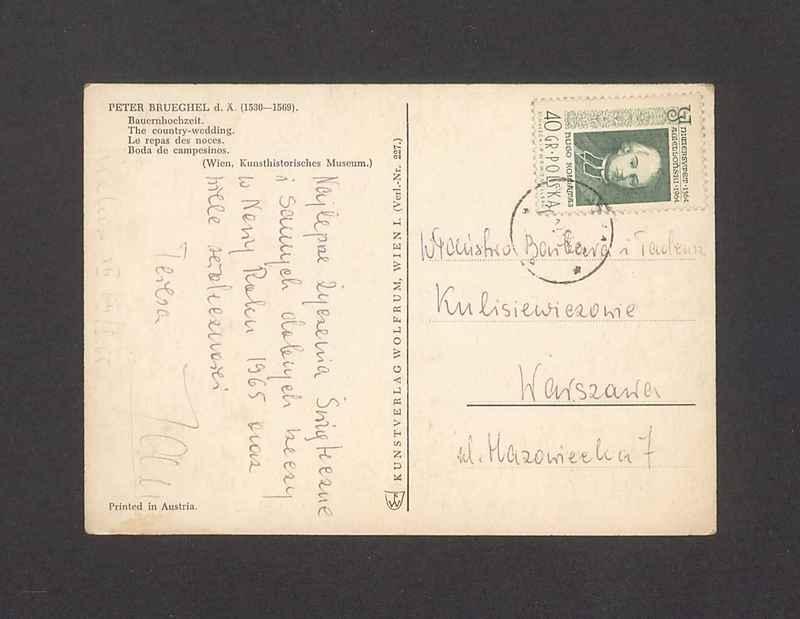 PETER BRUEGHEL d. Ä. (1530—1569).
Bauernhochzeit.
The country-wedding.
Le repas des noces.
Boda de campesinos.
(Wien, Kunsthistorisches Museum.)
Najlepsze życzenia Świąteczne
i samych dobrych rzeczy
w Nowym Roku 1965 oraz
wiele serdeczności
Teresa
Printed in Austria.
KUNSTVERLAG WOLFRUM, WIEN I. (Verl.-Nr. 227.)
40 GR·POLSKA
HUGO KOŁŁĄTAJ
UNIWERSYTET·1364
JAGIELLOŃSKI·1964
Barbara i Tadeusz
Kulisiewiczowie
Warszawa
ul. Mazowiecka 7